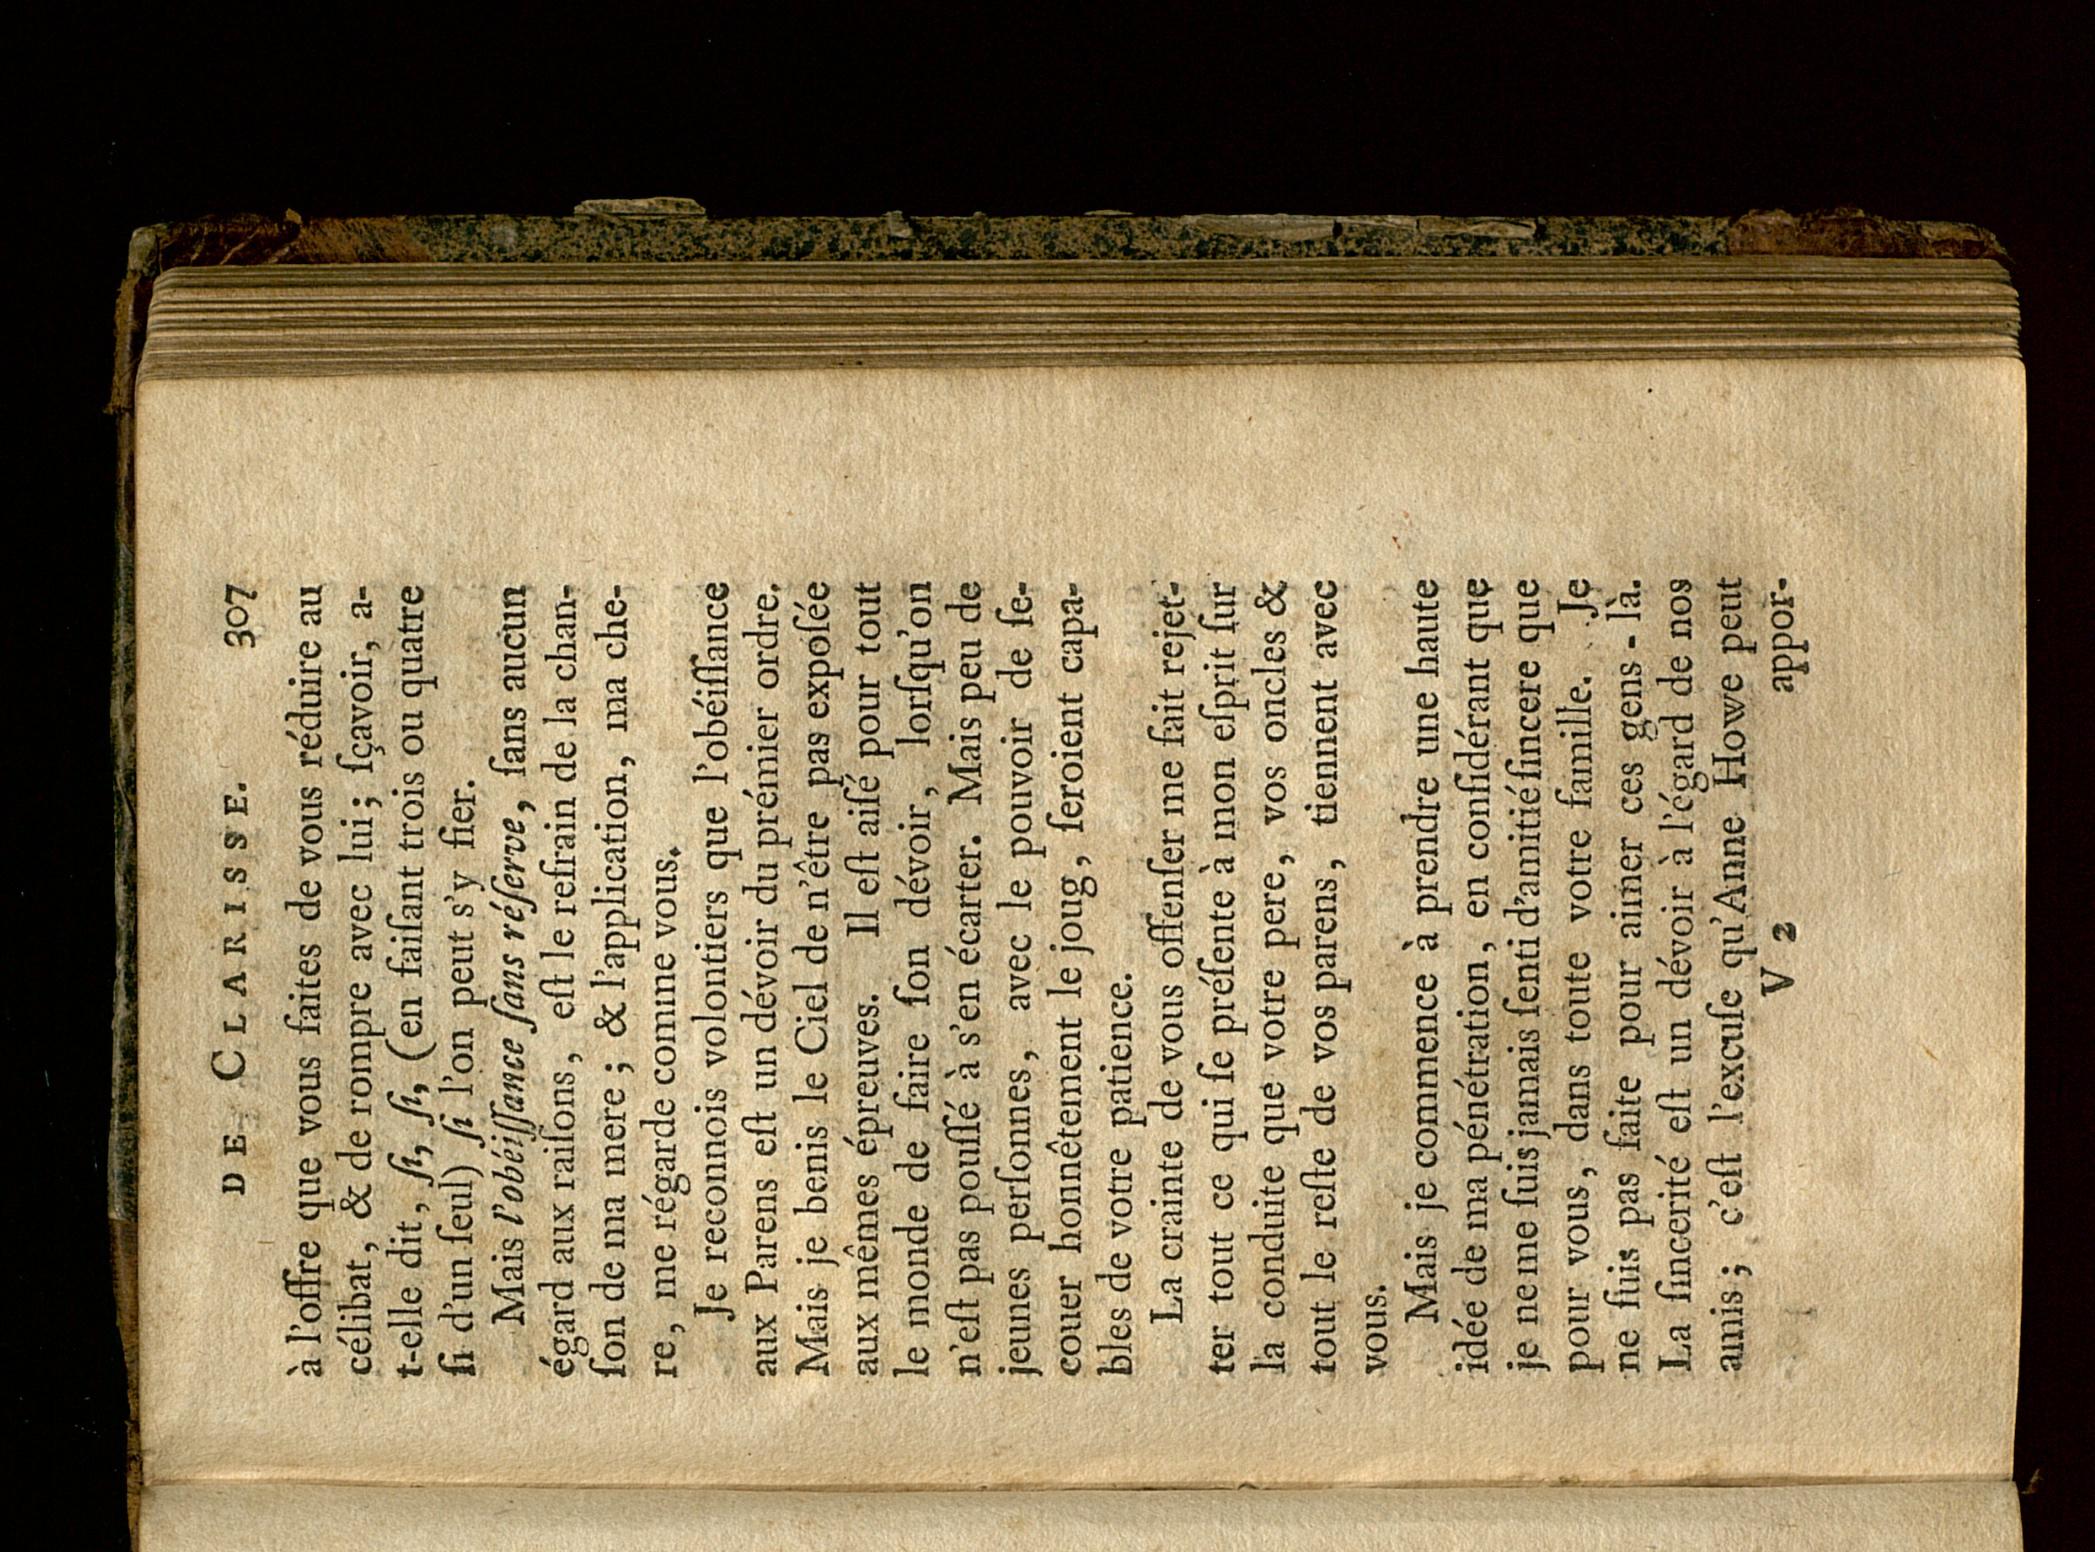 DE CLARISSE. 307
à l'offre que vous faites de vous réduire au
célibat, & de rompre avec lui; ſçavoir, a-
t-elle dit, ſi, ſi, ſi, (en faiſant trois ou quatre
ſi d'un ſeul) ſi l'on peut s'y fier.
Mais l'obéiſſance ſans réſerve, ſans aucun
égard aux raiſons, eſt le refrain de la chan-
ſon de ma mere; & l'application, ma che-
re, me régarde comme vous.
Je reconnois volontiers que l'obéiſſance
aux Parens eſt un dévoir du prémier ordre.
Mais je benis le Ciel de n'être pas expoſée
aux mêmes épreuves. Il eſt aiſé pour tout
le monde de faire ſon dévoir, lorſqu'on
n'eſt pas pouſſé à s'en écarter. Mais peu de
jeunes perſonnes, avec le pouvoir de ſe-
couer honnêtement le joug, ſeroient capa-
bles de votre patience.
La crainte de vous offenſer me fait rejet-
ter tout ce qui ſe préſente à mon eſprit ſur
la conduite que votre pere, vos oncles &
tout le reſte de vos parens, tiennent avec
vous.
Mais je commence à prendre une haute
idée de ma pénétration, en conſidérant que
je ne me ſuis jamais ſenti d'amitié ſincere que
pour vous, dans toute votre famille. Je
ne ſuis pas faite pour aimer ces gens-là.
La ſincerité eſt un dévoir à l'égard de nos
amis; c'eſt l'excuſe qu'Anne Howe peut
V 2 appor-